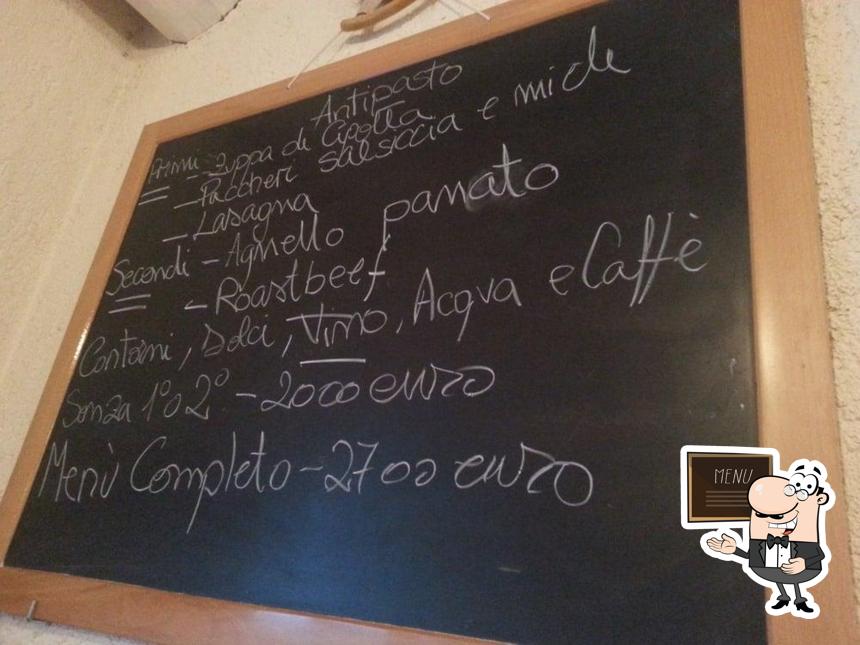 Antipasto
Primi - Zuppa di Cipolla
- Paccheri salsiccia e miele
- Lasagna
Secondi - Agnello panato
- Roastbeef
Contorni, Dolci, Vino, Acqua e Caffè
Senza 1° o 2° - 2000 euro
Menù Completo - 2700 euro
MENU